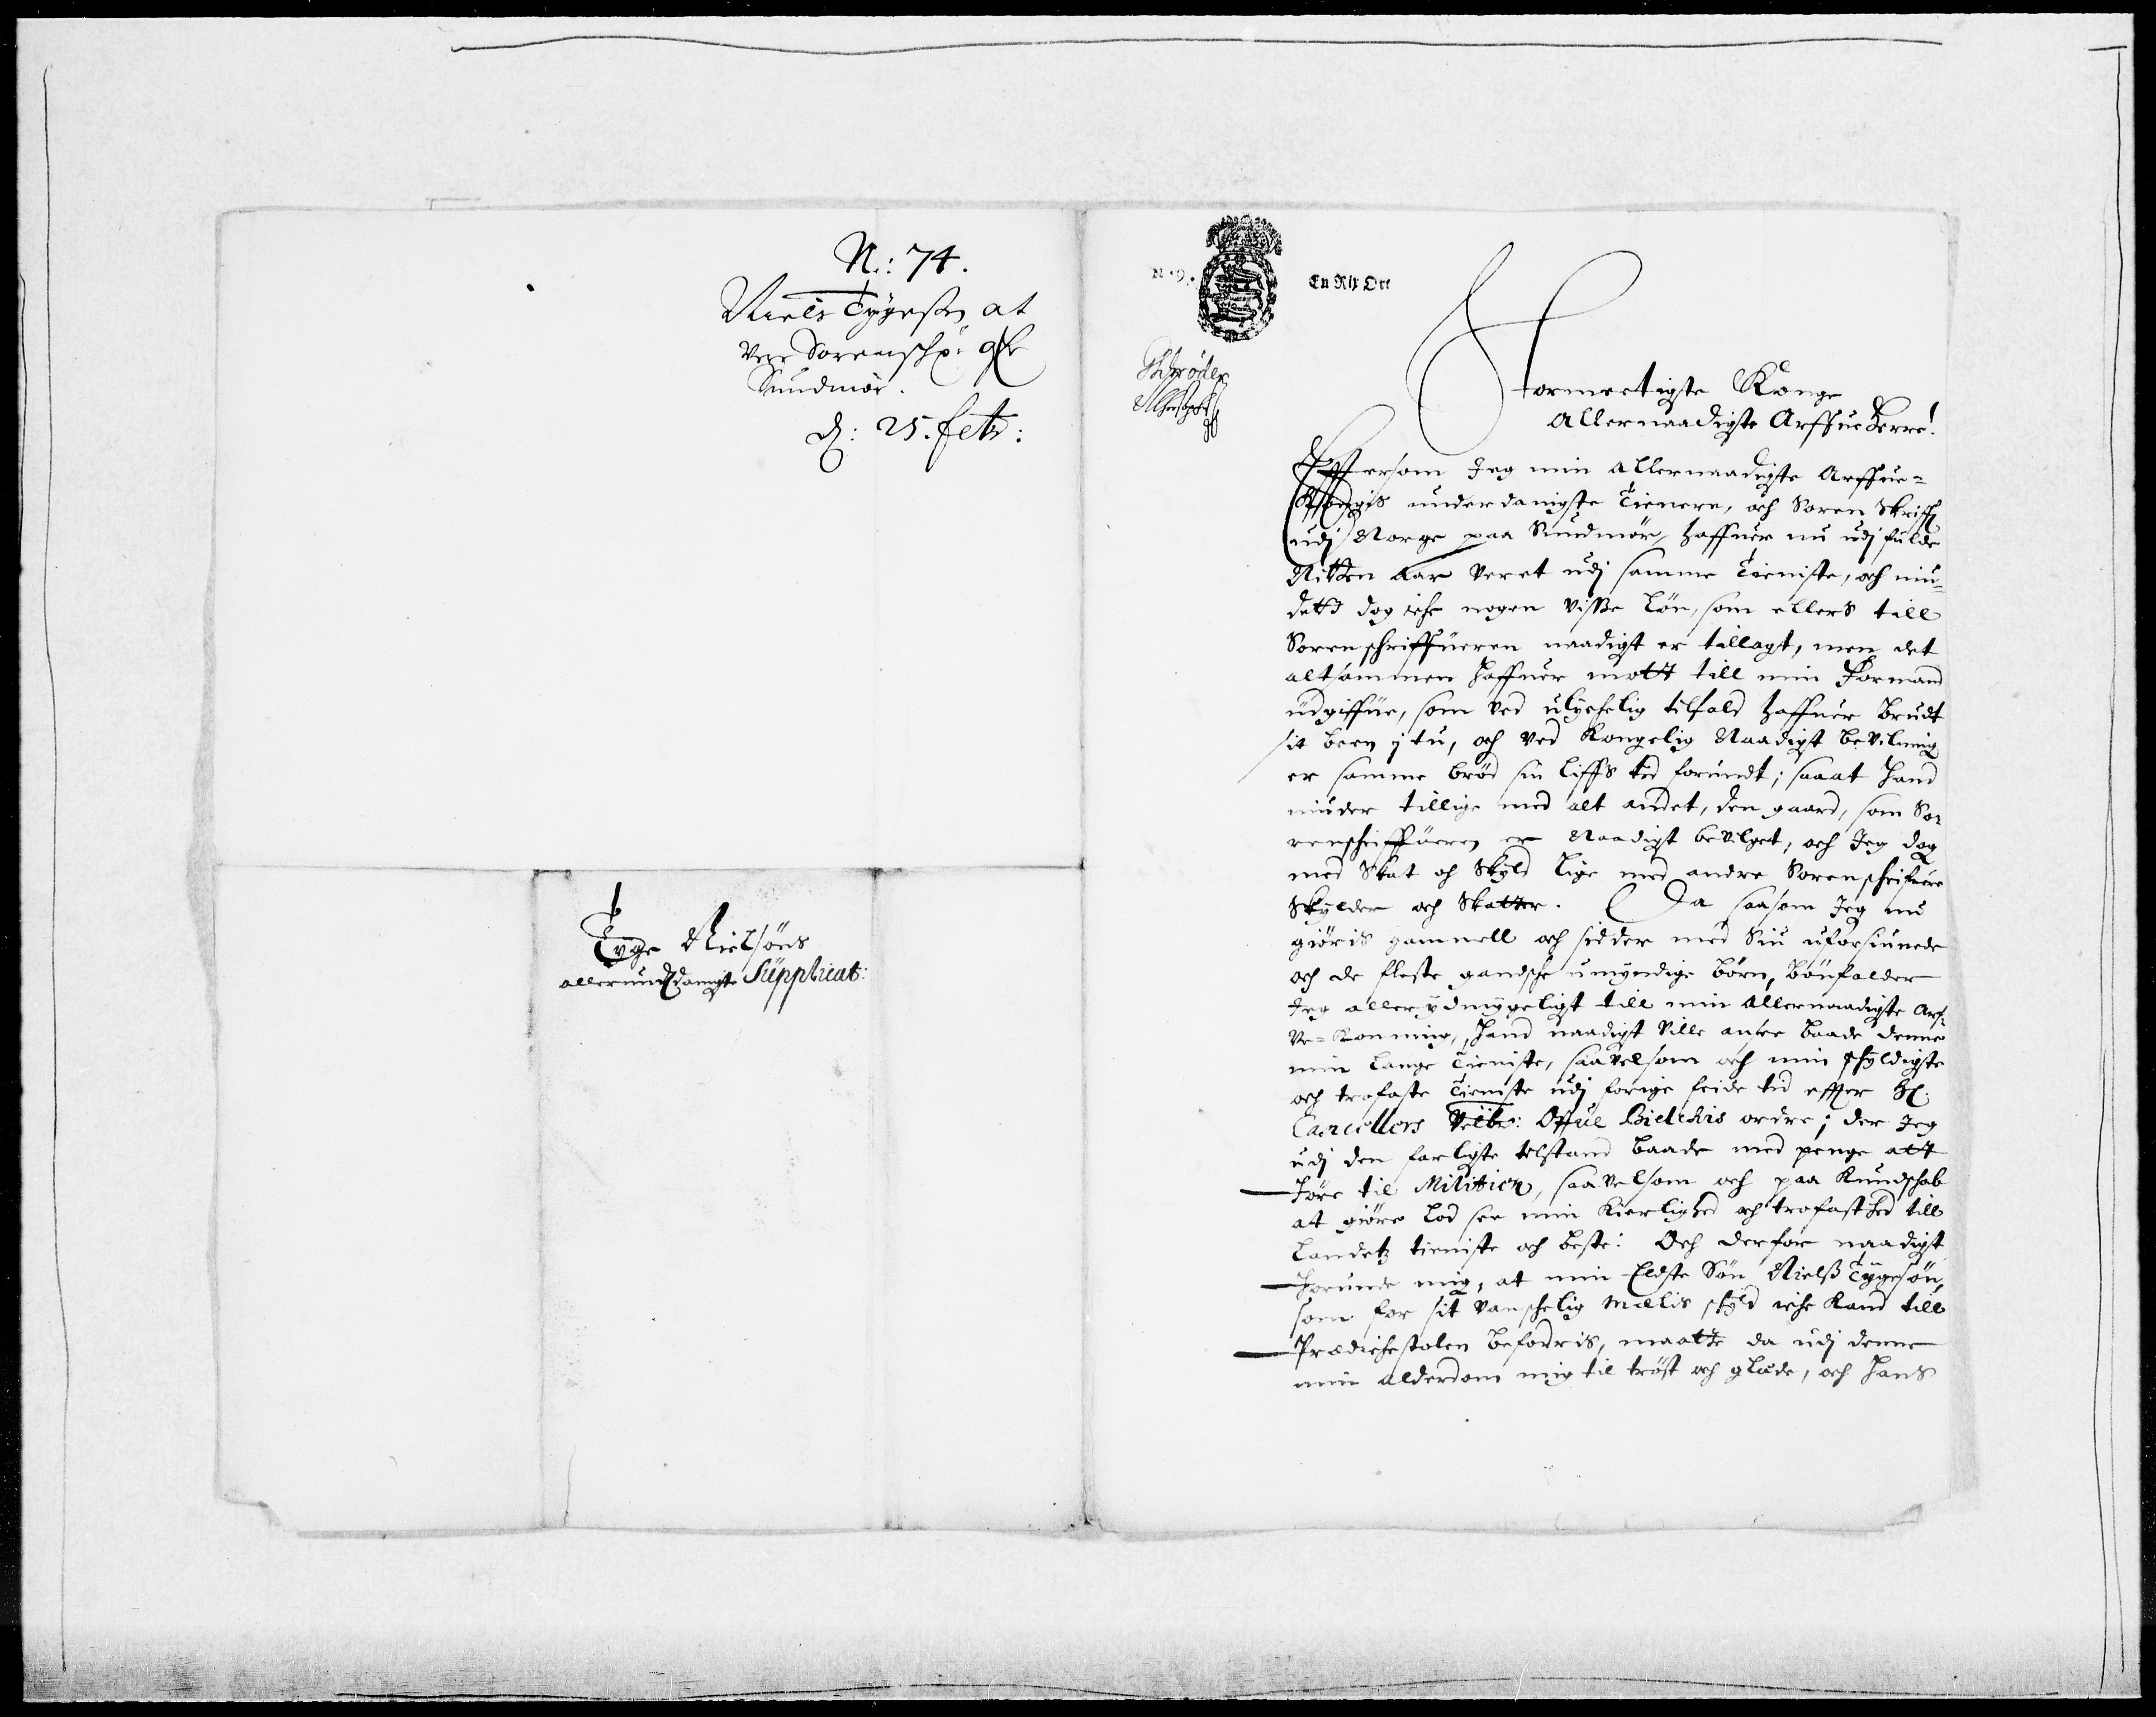 N.: 74.
Niels Tygesen at
vere Sorenschr: 
Sundmör.
d: 25. febr:
Tyge Nielsöns
allerunderdanigste Supplicat:
N. 9.
En Rix Ort
Schröder
Stormectigste Konge
Allernaadigste Arffue Herre!
Efftersom Jeg min allernaadigste Arffue-
Kongis underdanigste Tienere, och Soren Skriff:
udj Norge paa Sundmör, haffuer nu udj fulde
Nitten Aar veret udj samme Tieniste, och niu-
dett dog iche nogen visse Lön, som ellers till
Sorenschriffueren naadigst er tillagt, men det
altsammen haffuer mott till min Formand
udgiffue, som ved ulychelig tilfald haffuer brudt
sit been j tu, och ved Kongelig Naadigst beviling
er samme bröd sin Liffs tid forundt; saaat hand
niuder tillige med alt andet, den gaard, som So-
renschriffueren er Naadigst bevilget, och Jeg dog
med Skat och Skyld lige med andre Sorenschrifuere
Skylder och Skatter. Da saasom Jeg nu
giöris gammell och sidder med Siu uforsiunede
och de fleste gandsche umyndige börn, bönfalder
Jeg allerydmygeligst till min Allernaadigste Arf-
ve-Konning, hand naadigst ville ansee baade denne
min lange Tieniste, saavelsom och min schyldigste
och trofaste Tieniste udj forrige feide tid effter H:
Cancellers Velbr: Offue Bielchis ordre; der Jeg
udj den farligste tilstand baade med penge att
före til Militien, saavelsom och paa Kundschab
at giöre lod see min Kierlighed och trofasthed till
Landetz tieniste och beste: Och derfor naadigst
forunde mig, at min Eldste Sön Nielss Tygesön,
som for sit vanschelig Mælis skyld iche kand till
Prædichestolen befordris, maatte da udj denne
min alderdom mig til tröst och glæde, och hans